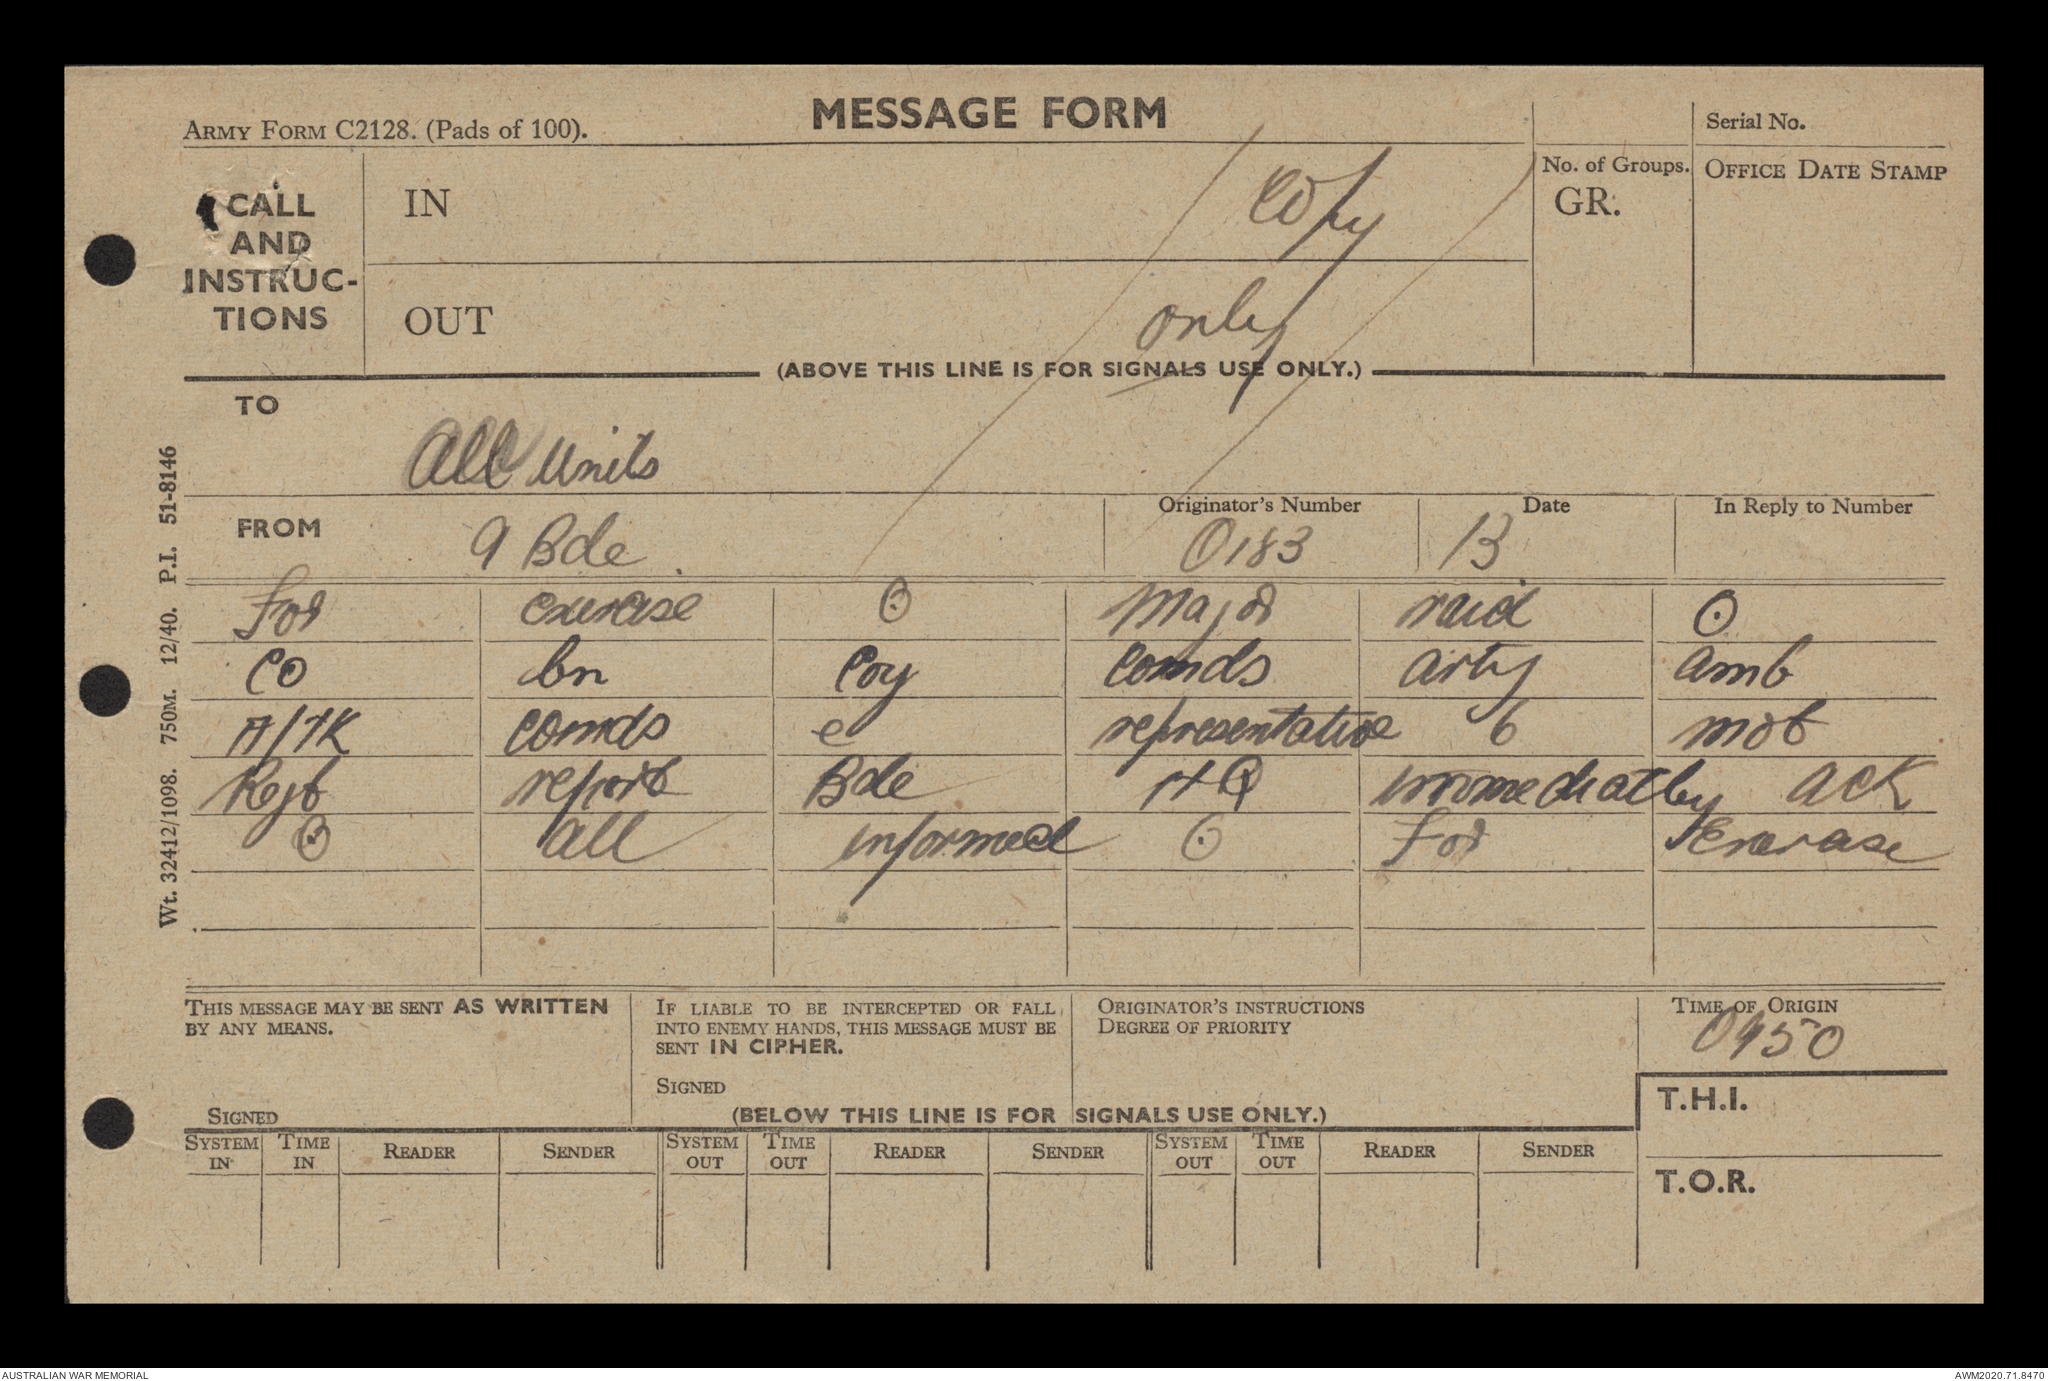 MESSAGE FORM
ARMY FORM C2128. (Pads of 100).
Serial No.
CALL AND INSTRUC-TIONS
IN
Copy
No. of Groups.
GR.
OFFICE DATE STAMP
OUT
only
(ABOVE THIS LINE IS FOR SIGNALS USE ONLY.)
TO
All Units
FROM
9 Bde
Originator's Number
0183
Date
13
In Reply to Number
For exercise ⊙ Major raid ⊙
CO bn Coy Comds arty amb
A/TK comds e representative 6 mot
Regt report Bde HQ immediatly ACK
⊙ all informed ⊙ For Exercise
Wt. 32412/1098. 750M. 12/40. P.I. 51-8146
THIS MESSAGE MAY BE SENT AS WRITTEN
BY ANY MEANS.
SIGNED
IF LIABLE TO BE INTERCEPTED OR FALL
INTO ENEMY HANDS, THIS MESSAGE MUST BE
SENT IN CIPHER.
SIGNED
ORIGINATOR'S INSTRUCTIONS
DEGREE OF PRIORITY
TIME OF ORIGIN
0950
T.H.I.
(BELOW THIS LINE IS FOR SIGNALS USE ONLY.)
SYSTEM IN TIME IN READER SENDER SYSTEM OUT TIME OUT READER SENDER SYSTEM OUT TIME OUT READER SENDER
T.O.R.
AUSTRALIAN WAR MEMORIAL
AWM2020.71.8470